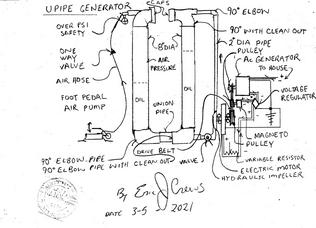 UPIPE GENERATOR
CCAPS
90° ELBOW
OVER PSI
SAFETY
90° WITH CLEAN OUT
8"DIA
2" DIA PIPE
PULLEY
ONE
WAY
VALVE
AIR
PRESSURE
AC GENERATOR
TO HOUSE
AIR HOSE
VOLTAGE
REGULATOR
OIL
OIL
FOOT PEDAL
AIR PUMP
UNION
PIPE
MAGNETO
PULLEY
DRIVE BELT
90° ELBOW PIPE
VALVE
VARIABLE RESISTOR
90° ELBOW PIPE WITH CLEAN OUT
ELECTRIC MOTOR
HYDRAULIC IMPELLER
By Eric J Crews
DATE 3-5 2021